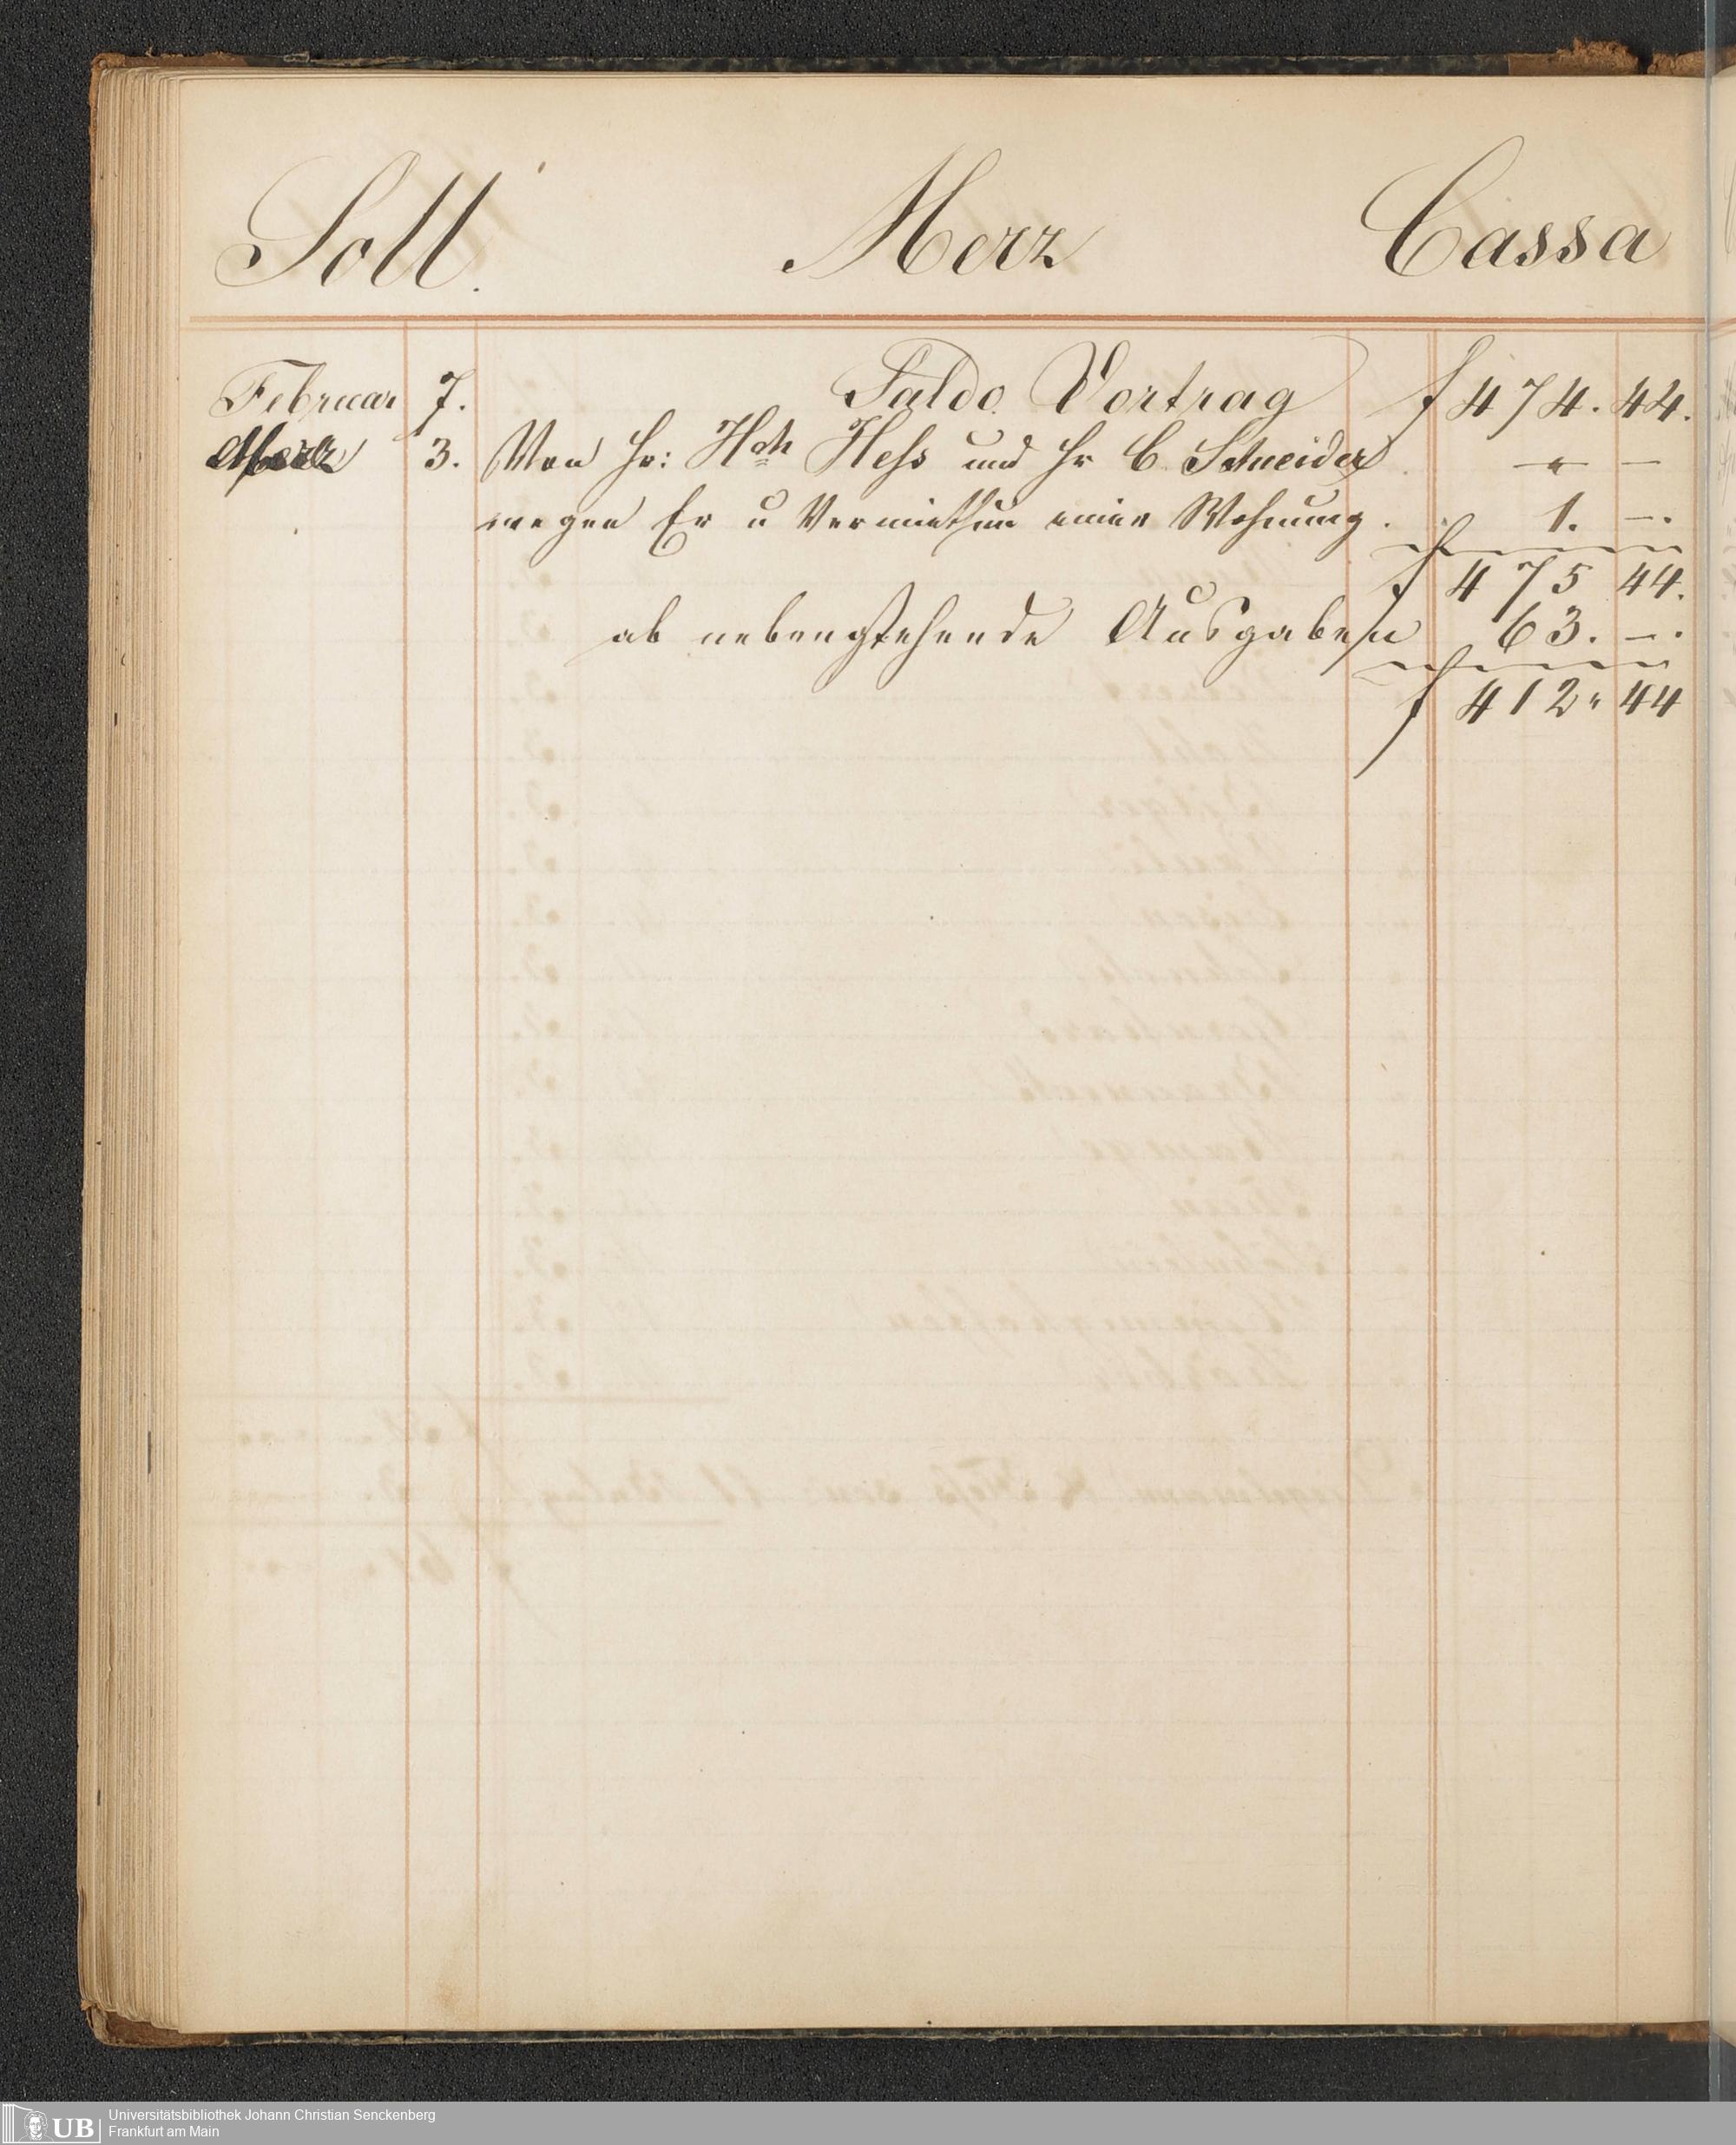 Soll. Merz Cassa
Februar 7. Saldo Vortrag f 474. 44.
Merz 3. Von Hr: Hch Hess und Hr C. Schneider — —
wegen Er u Vermiethun einer Wohnung. 1. —.
f 475 44.
ab nebenstehende Ausgaben 63. —.
f 412 " 44
UB
Universitätsbibliothek Johann Christian Senckenberg
Frankfurt am Main